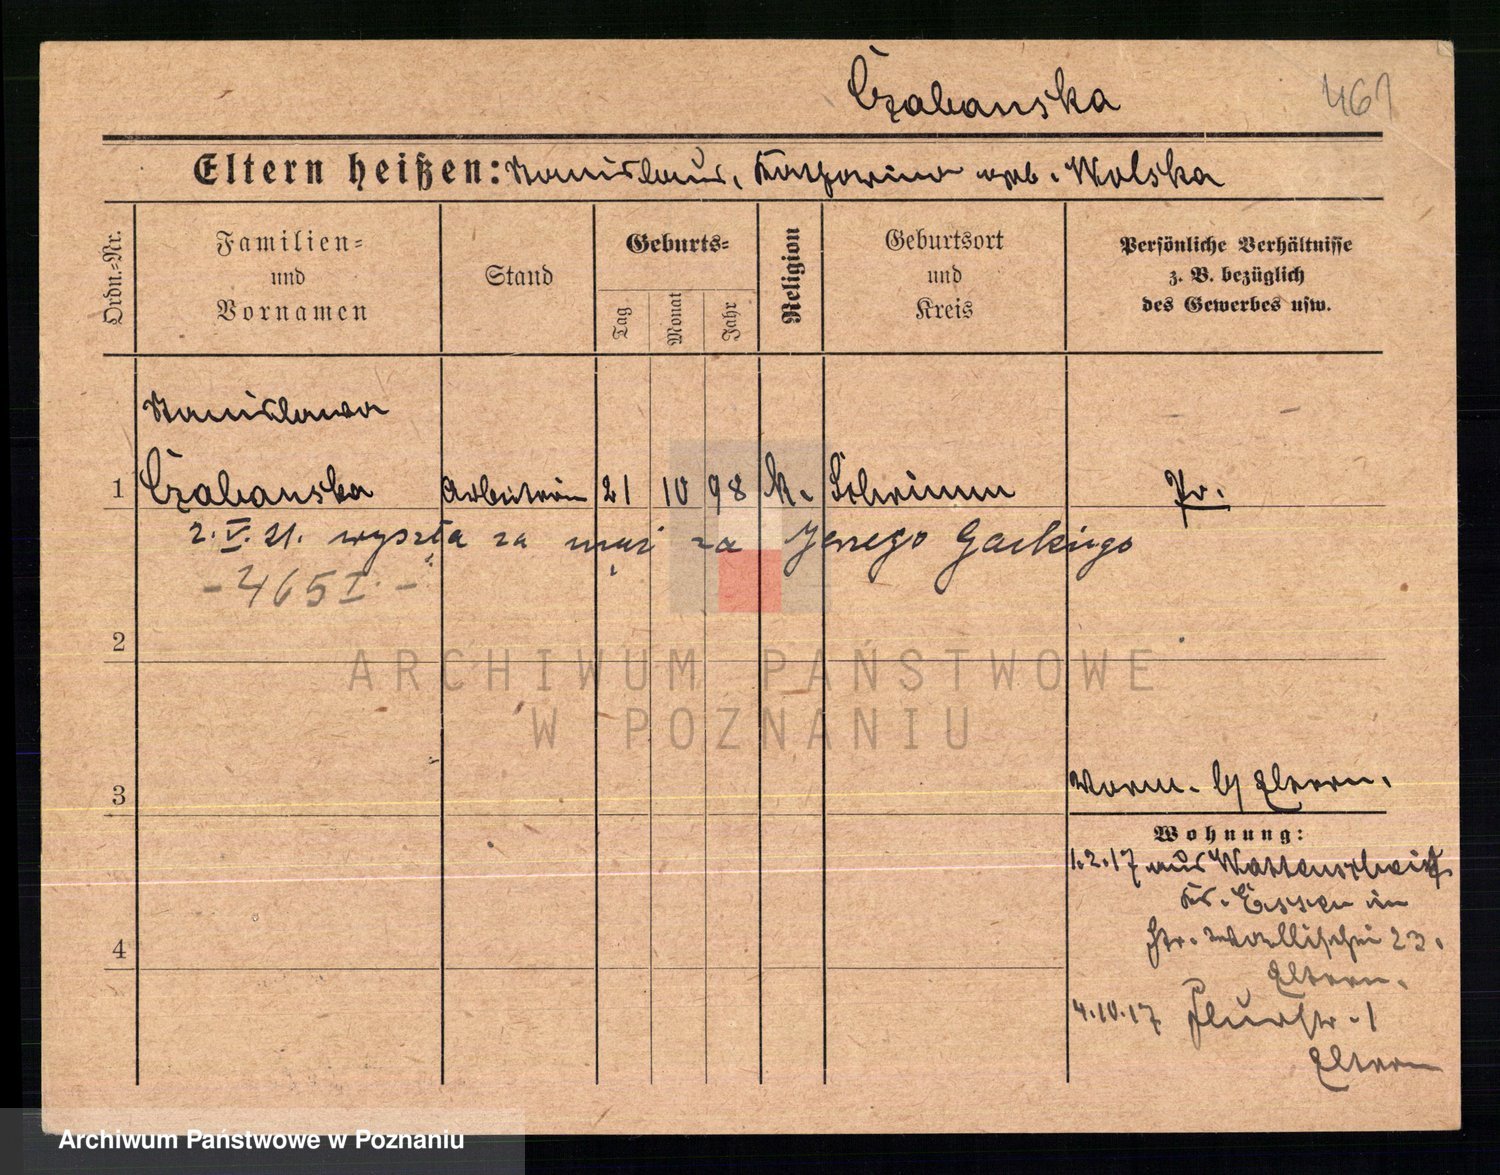 Czabanska
461
Eltern heißen: Stanislaus, Katharina geb. Wolska
Ordn.-Nr.
Familien-
und
Vornamen
Stand
Geburts-
Tag
Monat
Jahr
Religion
Geburtsort
und
Kreis
Persönliche Verhältnisse
z. B. bezüglich
des Gewerbes usw.
Stanislawa
1 Czabanska Arbeiterin 21 10 98 k. Schrimm Pr.
2. V. 21. wyszła za mąż za Jerzego Gackiego
- 465 I. -
2
ARCHIWUM PAŃSTWOWE
W POZNANIU
3
Eltern.
Wohnung:
1.2.17 aus Wattenscheid
Kr. Essen in
Wallischei 23.
Eltern.
4
4.10.17 Flurstr. 1
Eltern
Archiwum Państwowe w Poznaniu